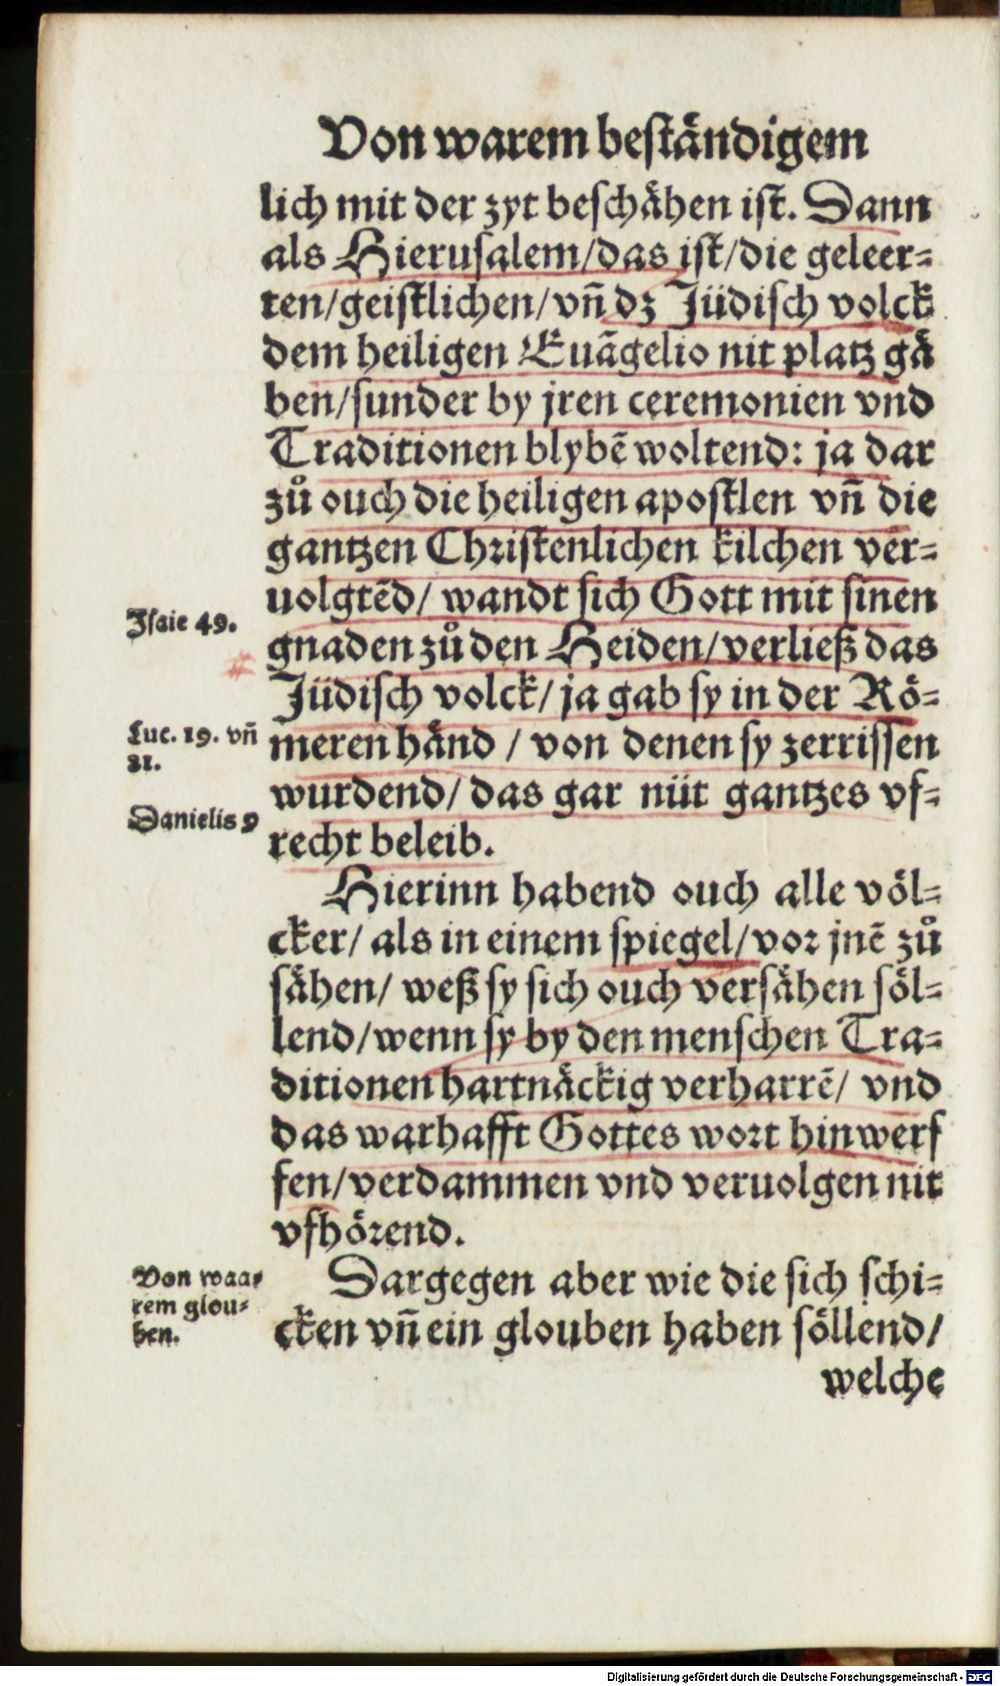 Von warem beständigem
lich mit der zyt beschähen ist. Dann
als Hierusalem/das ist/die geleer-
ten/geistlichen/vñ dz Jüdisch volck
dem heiligen Euãgelio nit platz gä
ben/sunder by jren ceremonien vnd
Traditionen blybẽ woltend: ja dar
zů ouch die heiligen apostlen vñ die
gantzen Christenlichen kilchen ver-
uolgtẽd/ wandt sich Gott mit sinen
Isaie 49.
gnaden zů den Heiden/verließ das
Jüdisch volck/ ja gab sy in der Rö-
Luc. 19. vñ
21.
meren händ / von denen sy zerrissen
wurdend/ das gar nüt gantzes vf-
Danielis 9
recht beleib.
Hierinn habend ouch alle völ-
cker/ als in einem spiegel/vor jnẽ zů
sähen/ weß sy sich ouch versähen söl-
lend/wenn sy by den menschen Tra-
ditionen hartnäckig verharrẽ/ vnd
das warhafft Gottes wort hinwerf
fen/verdammen vnd veruolgen nit
vfhörend.
Von waa-
rem glou-
ben.
Dargegen aber wie die sich schi-
cken vñ ein glouben haben söllend/
welche
Digitalisierung gefördert durch die Deutsche Forschungsgemeinschaft - DFG